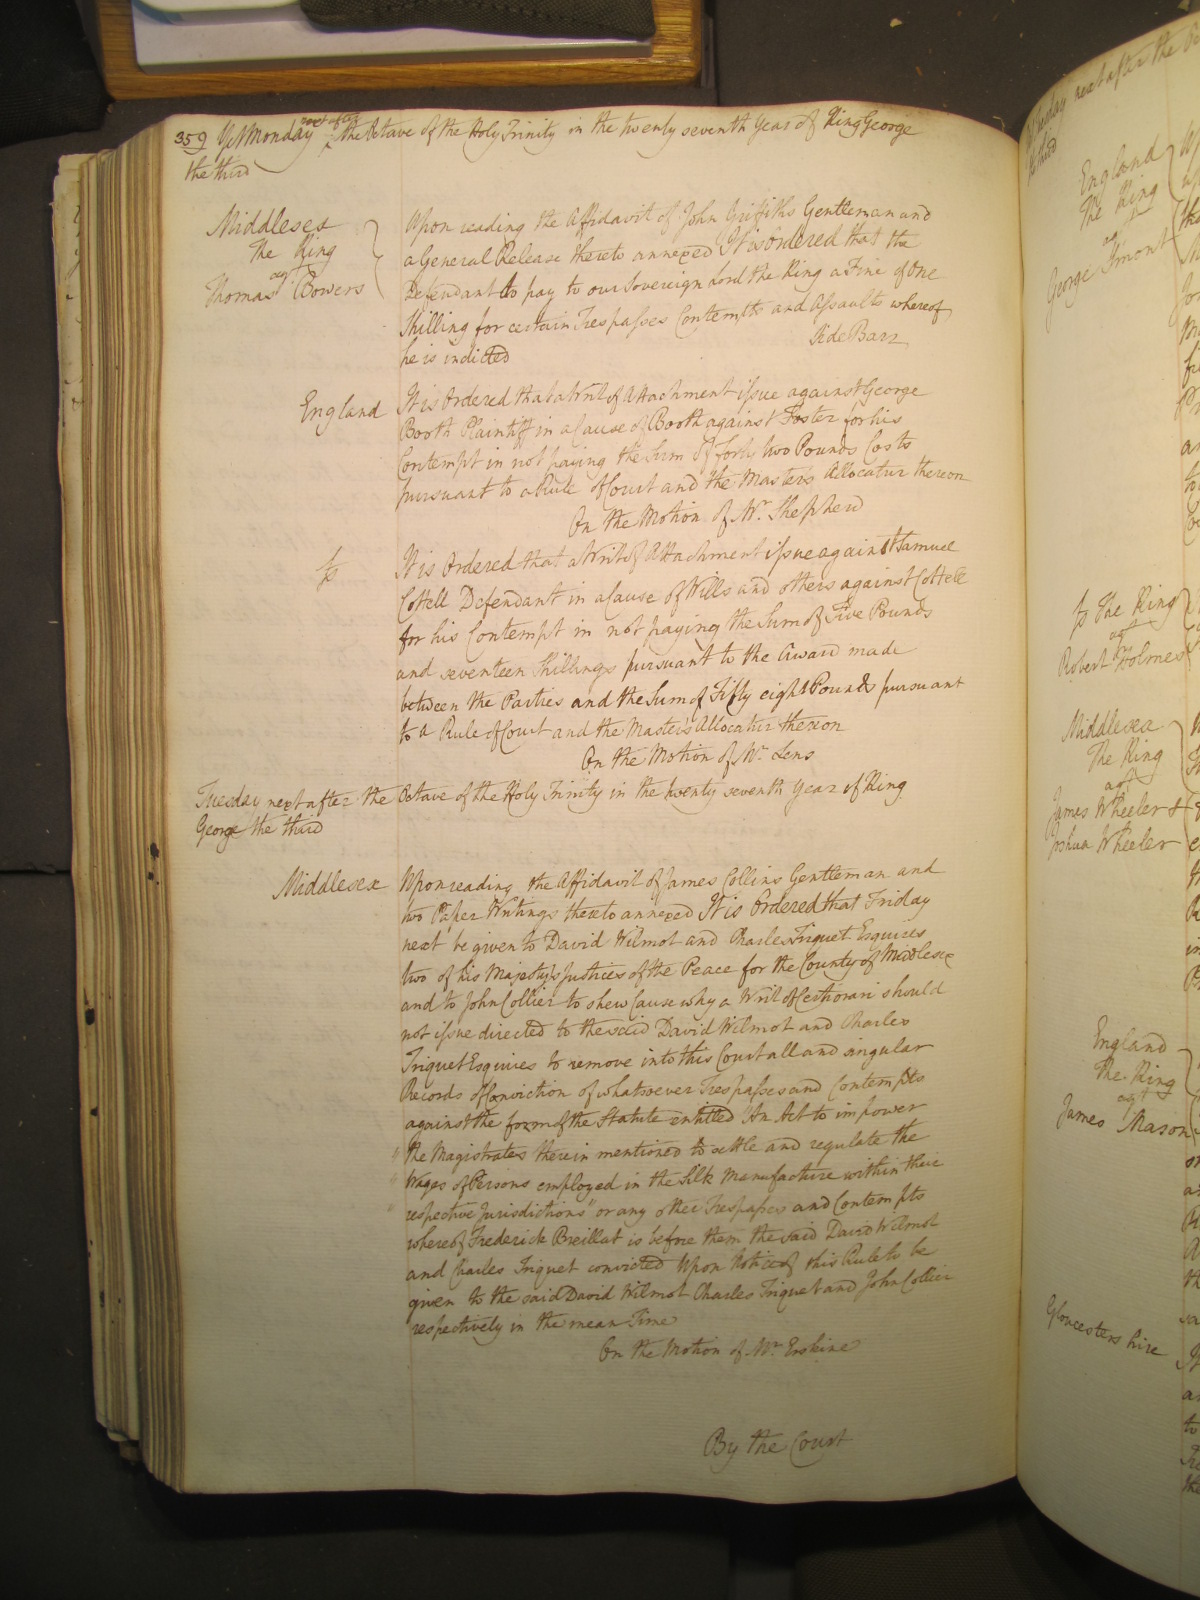 359 Yet Monday next after the Octave of the Holy Trinity in the twenty seventh Year of King George
the third
Middlesex
The King
agt
Thomas Bowers
Upon reading the Affidavit of John Griffiths Gentleman and
a General Release thereto annexed It is Ordered that the
Defendant do pay to our Sovereign Lord the King a Fine of One
Shilling for certain Trespasses Contempts and Assaults whereof
he is indicted
Side Barr
England
It is Ordered that a Writ of Attachment issue against George
Booth Plaintiff in a Cause of Booth against Foster for his
Contempt in not paying the Sum of forty two Pounds Costs
pursuant to a Rule of Court and the Masters Allocatur thereon
On the Motion of Mr. Shepherd
It is Ordered that a Writ of Attachment issue against Samuel
Cottell Defendant in a Cause of Wills and others against Cottell
for his Contempt in not paying the Sum of Five Pounds
and seventeen Shillings pursuant to the Award made
between the Parties and the Sum of Fifty eight Pounds pursuant
to a Rule of Court and the Master's Allocatur thereon
On the Motion of Mr. Lens
Tuesday next after the Octave of the Holy Trinity in the twenty seventh Year of King
George the third
Middlesex
Upon reading the Affidavit of James Collins Gentleman and
two Paper Writings thereto annexed It is Ordered that Friday
next be given to David Wilmot and Charles Triquet Esquires
two of his Majesty's Justices of the Peace for the County of Middlesex
and to John Collier to shew Cause why a Writ of Certiorari should
not issue directed to the said David Wilmot and Charles
Triquet Esquires to remove into this Court all and singular
Records of Conviction of whatsoever Trespasses and Contempts
against the form of the Statute entitled "An Act to impower
" the Magistrates therein mentioned to settle and regulate the
" Wages of Persons employed in the Silk Manufacture within their
" respective Jurisdictions" or any other Trespasses and Contempts
whereof Frederick Breillat is before them the said David Wilmot
and Charles Triquet convicted Upon Notice of this Rule to be
given to the said David Wilmot Charles Triquet and John Collier
respectively in the mean Time
On the Motion of Mr. Erskine
By the Court
next after the
the third
England
The King
agt
George
The King
agt
Robert Holmes
Middlesex
The King
agt
James Wheeler &
Joshua Wheeler
England
The King
agt
James Mason
Gloucestershire